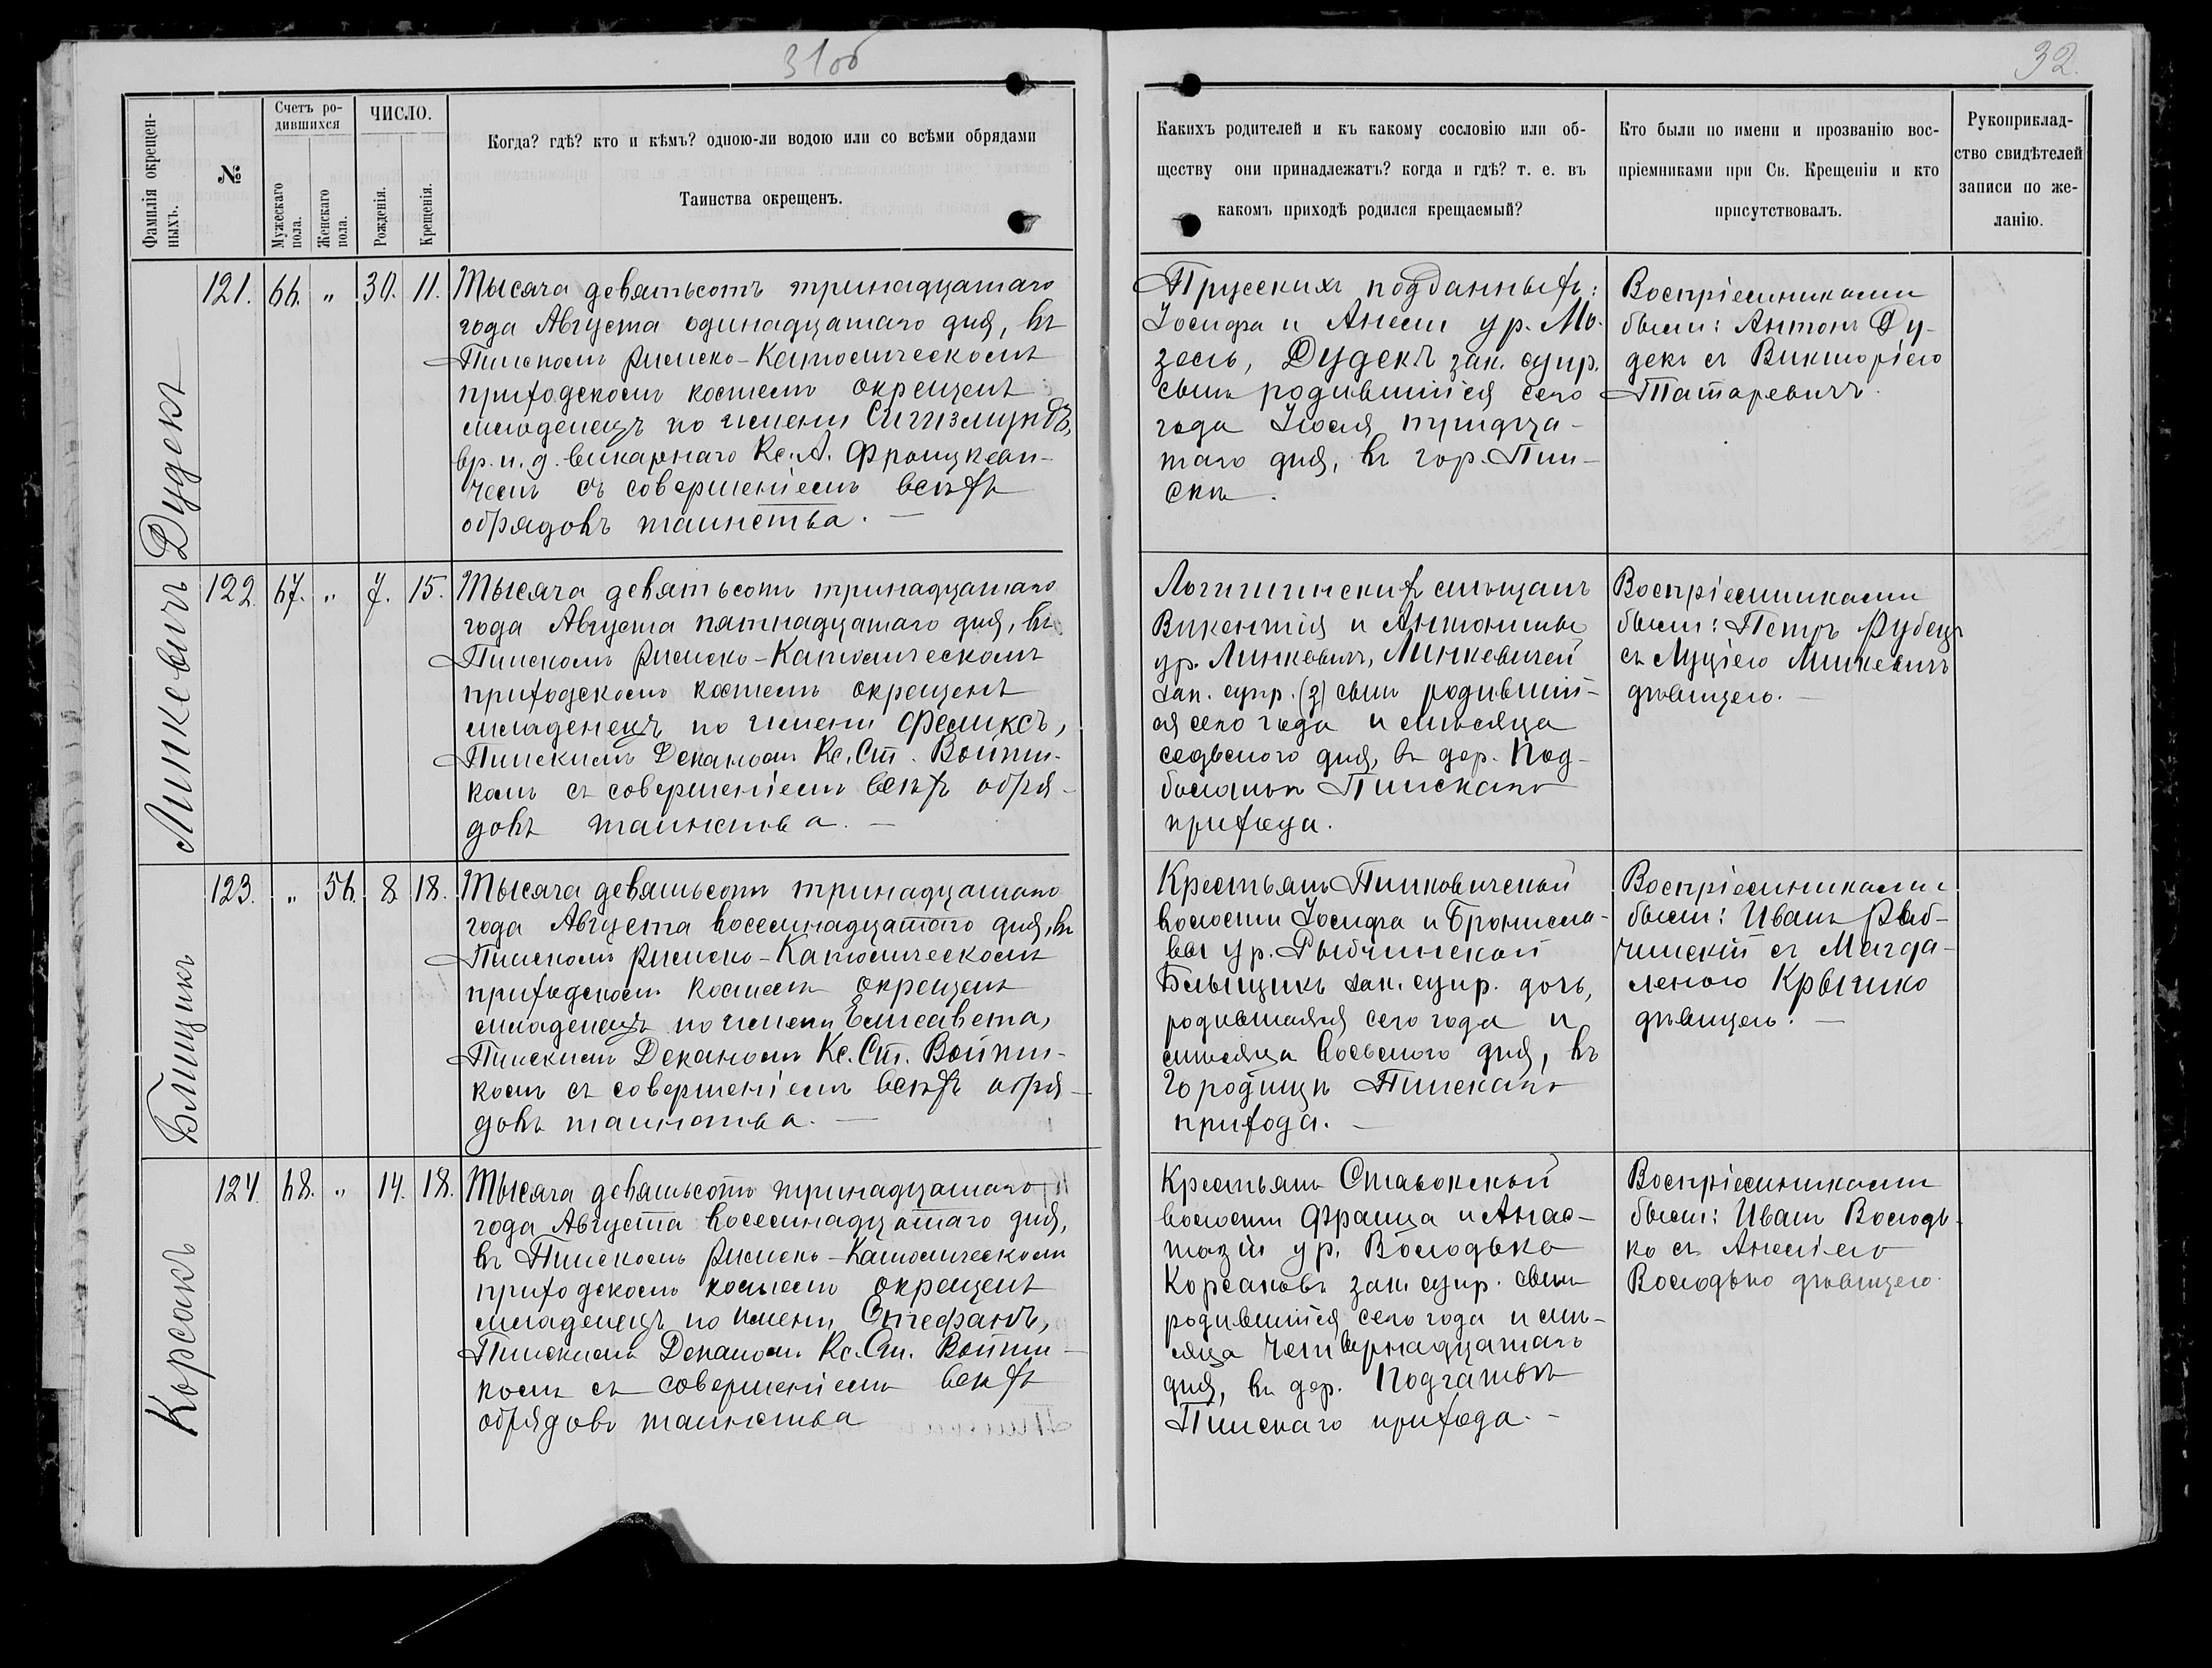 31об
32.
Фамилія окрещен-
ныхъ.
№
Счетъ ро-
дившихся
Мужескаго
пола.
Женскаго
пола.
ЧИСЛО.
Рожденія.
Крещенія.
Когда? гдѣ? кто и кѣмъ? одною-ли водою или со всѣми обрядами
Таинства окрещенъ.
Какихъ родителей и къ какому сословію или об-
ществу они принадлежатъ? когда и гдѣ? т. е. въ
какомъ приходѣ родился крещаемый?
Кто были по имени и прозванію вос-
пріемниками при Св. Крещеніи и кто
присутствовалъ.
Рукоприклад-
ство свидѣтелей
записи по же-
ланію.
Дудекъ
121. 66. „ 30. 11.
Тысяча девятьсотъ тринадцатаго
года Августа одинадцатаго дня, въ
Пинскомъ Римско-Католическомъ
приходскомъ костелѣ окрещенъ
младенецъ по имени Сигизмундъ,
вр. и. д. викарнаго Кс. А.
съ совершеніемъ всѣхъ
обрядовъ таинства. —
Прусскихъ подданныхъ:
Іосифа и Анели ур. Мо-
зель, Дудекъ зак. супр.
сынъ родившійся сего
года Іюля тридца-
таго дня, въ гор. Пин-
скѣ.
Воспріемниками
были: Антонъ Ду-
декъ съ Викторіею
Татаревичъ.
Линкевичъ
122. 67. „ 7. 15.
Тысяча девятьсотъ тринадцатаго
года Августа пятнадцатаго дня, въ
Пинскомъ Римско-Католическомъ
приходскомъ костелѣ окрещенъ
младенецъ по имени Феликсъ,
Пинскимъ Деканомъ Кс. Ст. Войти-
комъ съ совершеніемъ всѣхъ обря-
довъ таинства. —
Логишинскихъ мѣщанъ
Викентія и Антонины
ур. Линкевичъ, Линкевичей
зак. супр. сынъ родившій-
ся сего года и мѣсяца
седьмого дня, въ дер. Под-
Пинскаго
прихода.
Воспріемниками
были: Петръ Рубецъ
съ Луціею Линкевичъ
дѣвицею. —
Блищикъ
123. „ 56. 8 18.
Тысяча девятьсотъ тринадцатаго
года Августа восемнадцатаго дня, въ
Пинскомъ Римско-Католическомъ
приходскомъ костелѣ окрещенъ
младенецъ по имени Елисавета,
Пинскимъ Деканомъ Кс. Ст. Войти-
комъ съ совершеніемъ всѣхъ обря-
довъ таинства. —
Крестьянъ Пинковичской
волости Іосифа и Брониса-
вы ур. Рыбчинской
Блыщикъ зак. супр. дочь,
родившаяся сего года и
мѣсяца восьмого дня, въ
Городищѣ Пинскаго
прихода. —
Воспріемниками
были: Иванъ Рыб-
чинскій съ Магда-
леною Крычко
дѣвицею. —
Корсакъ
124. 68. „ 14. 18.
Тысяча девятьсотъ тринадцатаго
года Августа восемнадцатаго дня,
въ Пинскомъ Римско-Католическомъ
приходскомъ костелѣ окрещенъ
младенецъ по имени Стефанъ,
Пинскимъ Деканомъ Кс. Ст. Войти-
комъ съ совершеніемъ всѣхъ
обрядовъ таинства
Крестьянъ Ставокской
волости Франца и Анас-
тазіи ур. Володько
Корсаковъ зак. супр. сынъ
родившійся сего года и мѣ-
сяца четвернадцатаго
дня, въ дер. Подгатье
Пинскаго прихода. —
Воспріемниками
были: Иванъ Володь-
ко съ Анеліею
Володько дѣвицею.